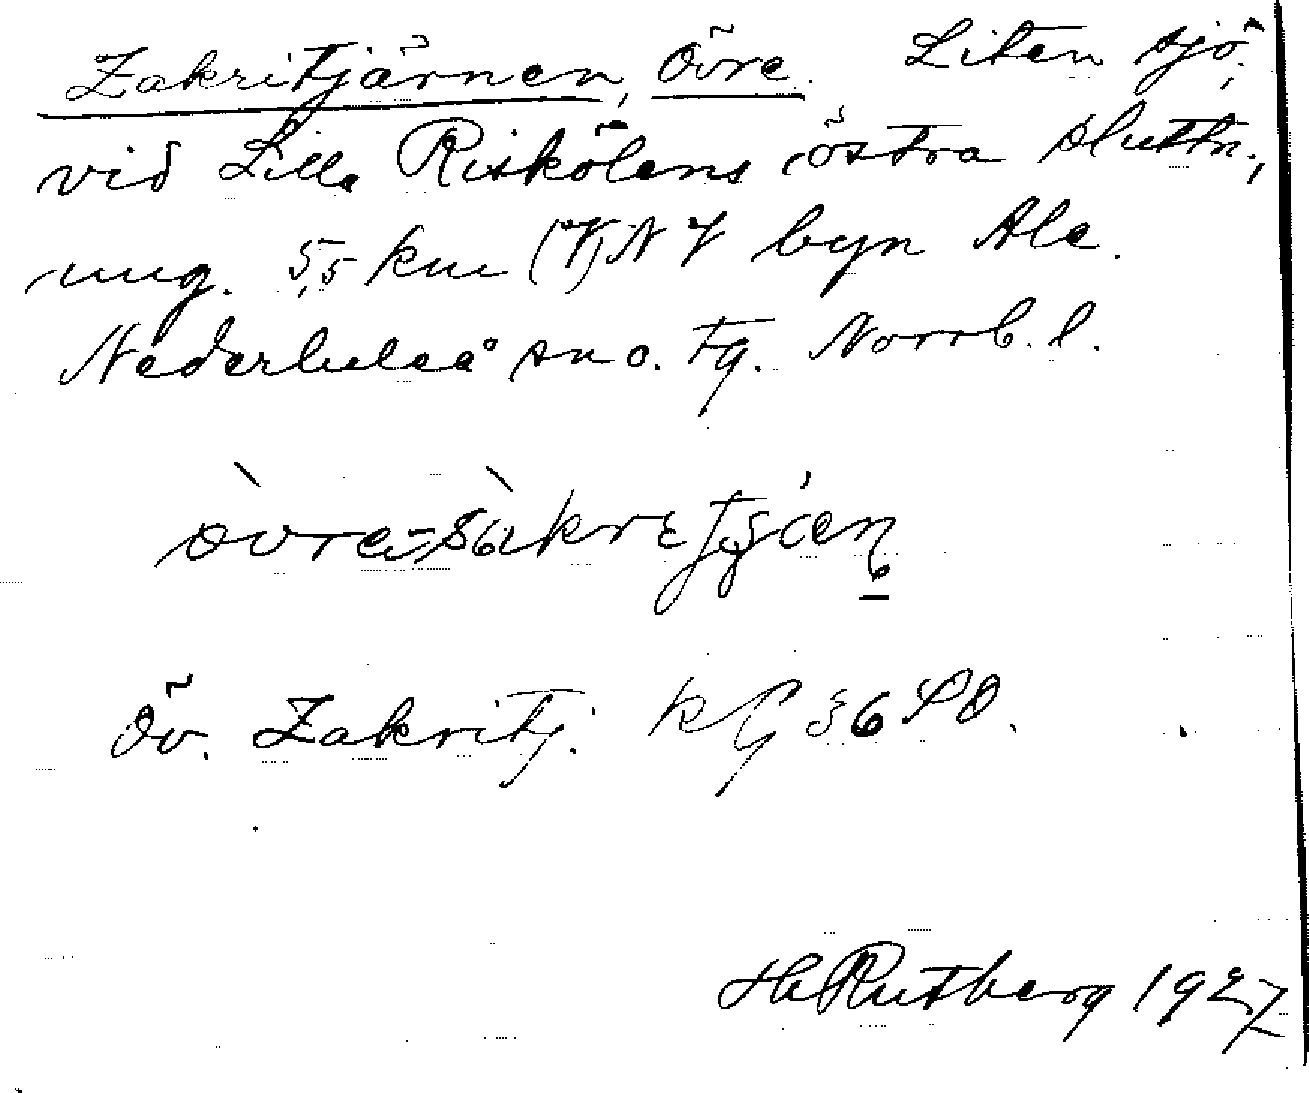 Zakritjärnen, Övre. Liten sjö,
vid Lilla Riskölens östra sluttn.,
ung. 5,5 km (V)NV byn Ale.
Nederluleå sn o. tg. Norrb. l.
Öv. Zakritj. kG 36 SO.
H. Rutberg 1927